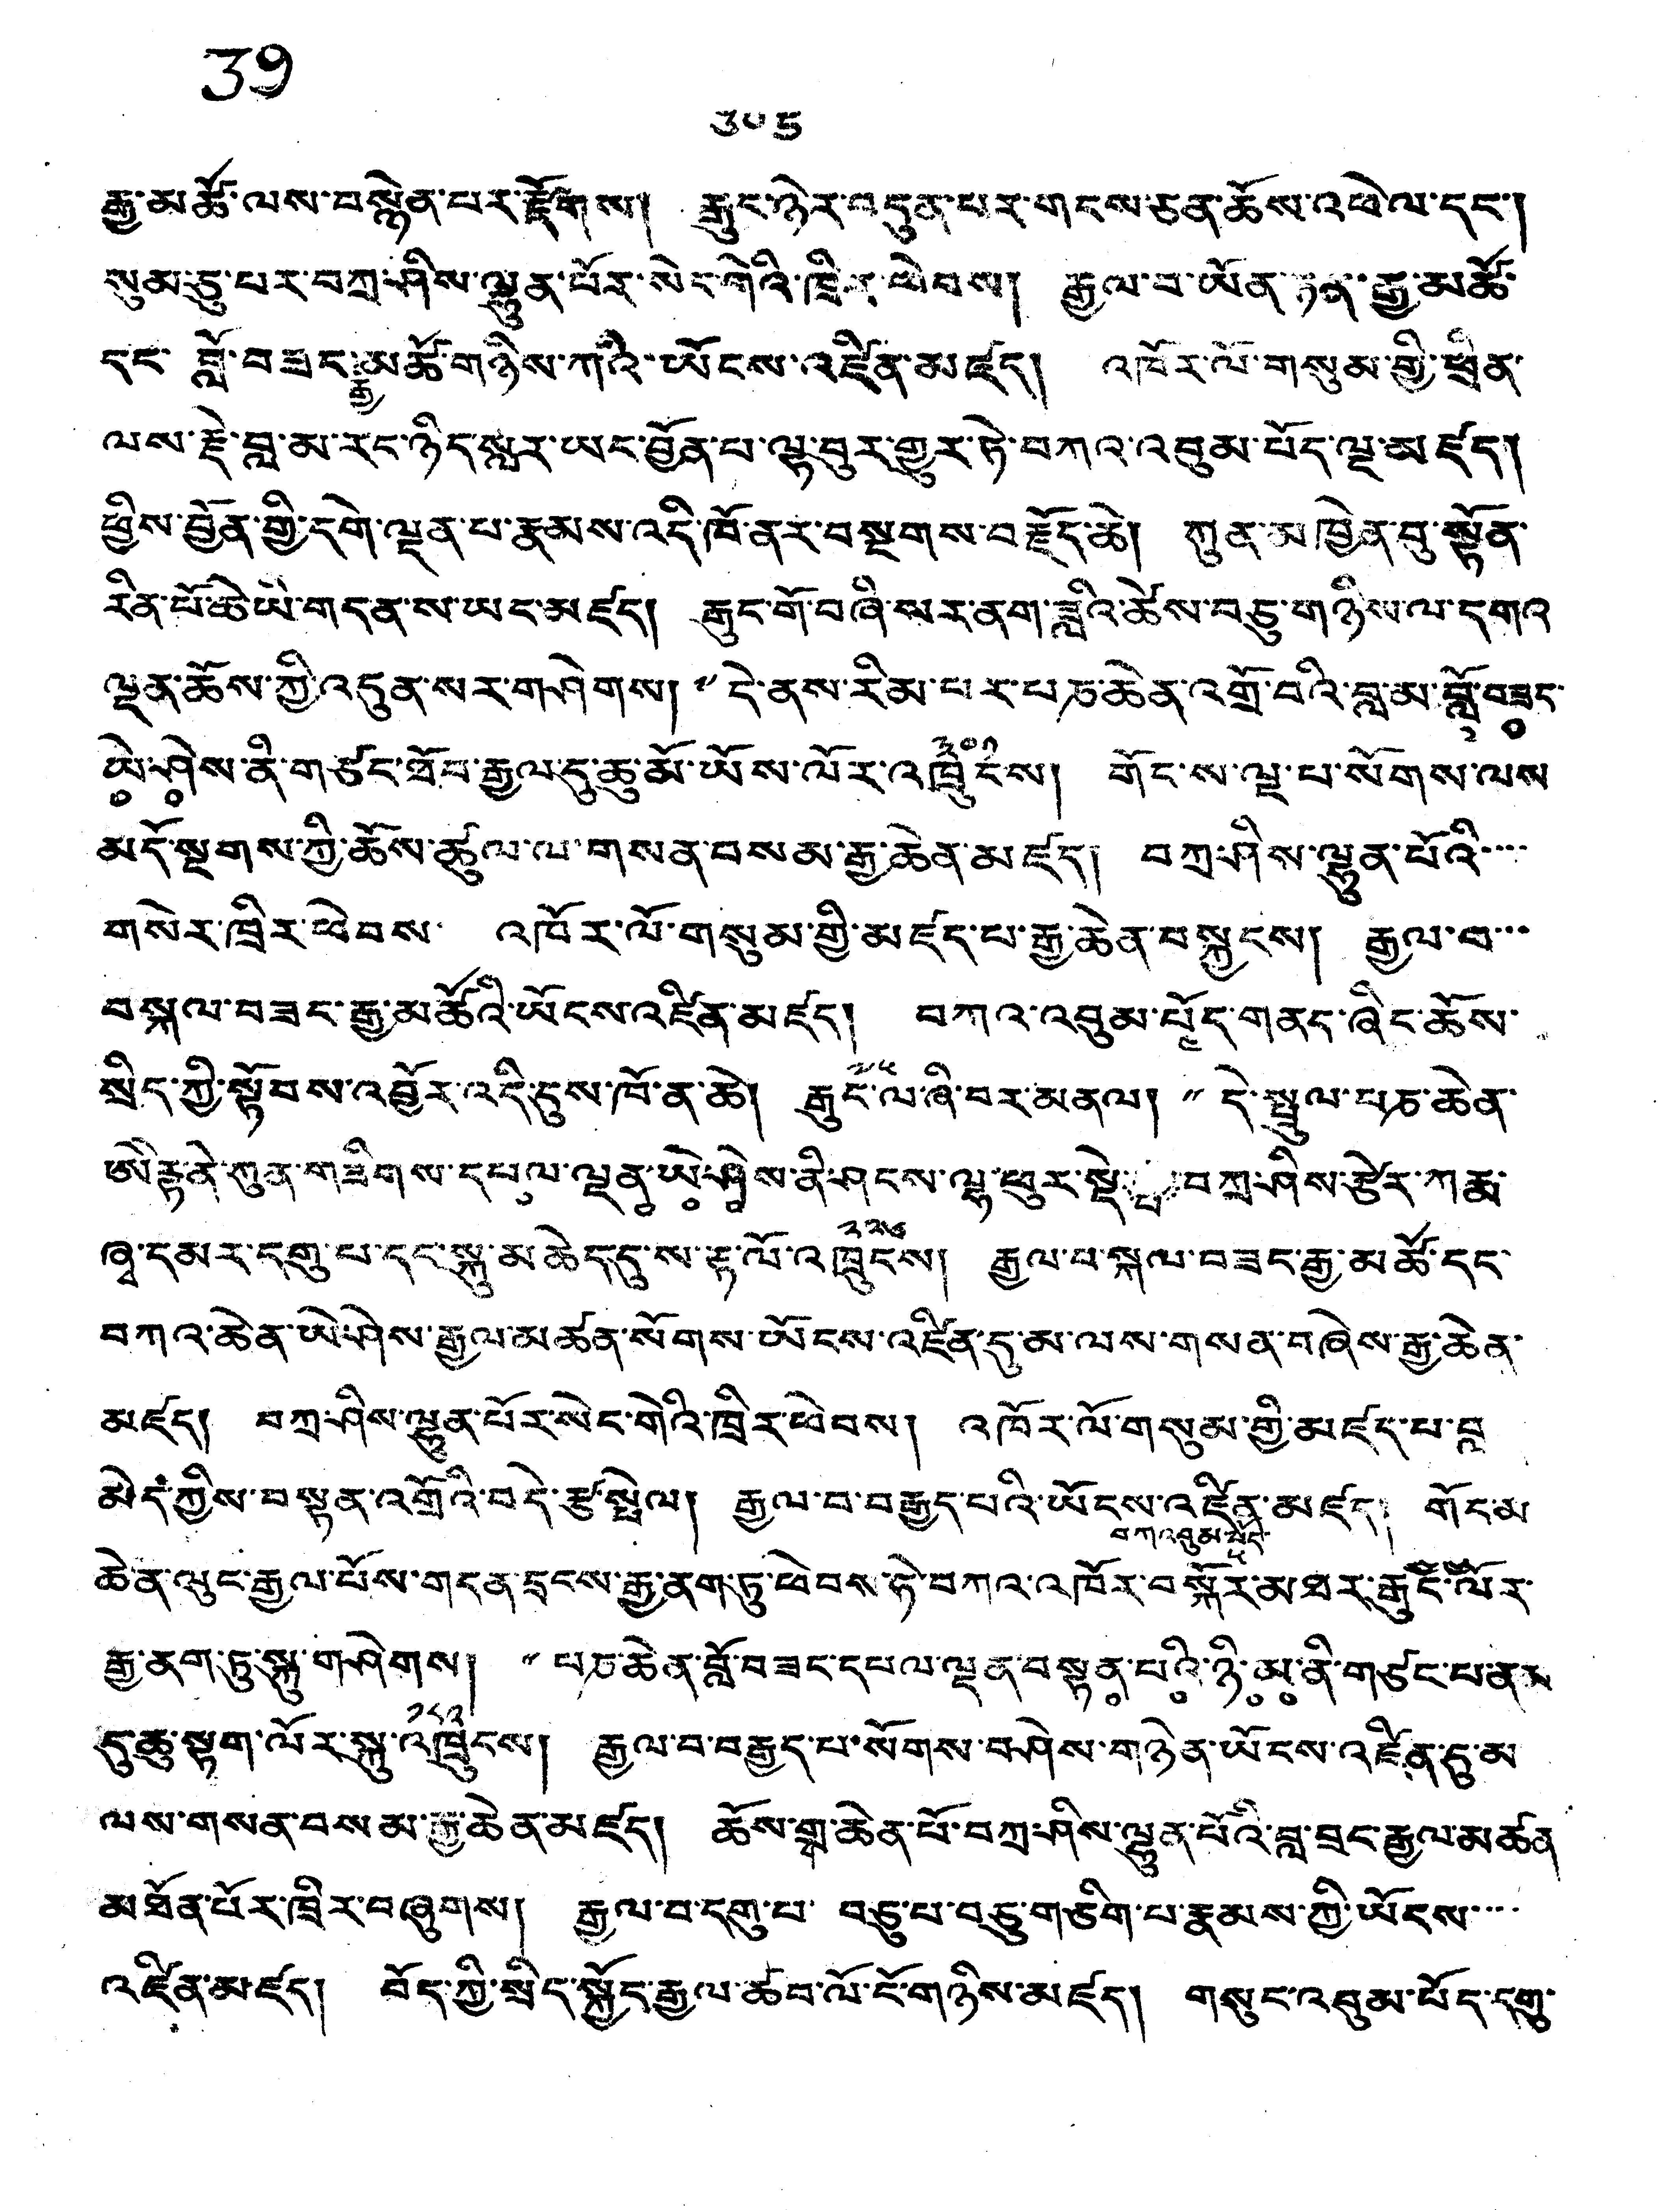 39
༣༠༥
རྒྱ་མཚོ་ལས་བསྙེན་པར་རྫོགས། རྒྱུང་ཉེར་བདུན་པར་གངས་ཅན་ཆོས་འཕེལ་དང་།
སུམ་ཅུ་པར་བཀྲ་ཤིས་ལྷུན་པོར་སེང་གེའི་ཁྲིར་ཕེབས། རྒྱལ་བ་ཡོན་ཏན་རྒྱ་མཚོ་
དང་བློ་བཟང་རྒྱ་མཚོ་གཉིས་ཀའི་ཡོངས་འཛིན་མཛད། འཁོར་ལོ་གསུམ་གྱི་ཕྲིན་
ལས་རྗེ་བླ་མ་རང་ཉིད་སླར་ཡང་བྱོན་པ་ལྟ་བུར་གྱུར་ཏེ་བཀའ་འབུམ་པོད་ལྔ་མཛད།
ཕྱིས་བྱོན་གྱི་དགེ་ལྡན་པ་རྣམས་འདི་ཁོ་ནར་བསྔགས་བརྗོད་ཆེ། ཀུན་མཁྱེན་བུ་སྟོན་
རིན་པོ་ཆེ་ཡི་གདན་ས་ཡང་མཛད། རྒྱུང་གོ་བཞི་སར་ནག་ཟླའི་ཚེས་བཅུ་གཉིས་ལ་དགའ་
ལྡན་ཆོས་ཀྱི་འདུན་སར་གཤེགས། "དེ་ནས་རིམ་པར་པཎ་ཆེན་འགྲོ་བའི་བླ་མ་བློ་བཟང་
ཡེ་ཤེས་ནི་གཙང་ཐོབ་རྒྱལ་དུ་ཆུ་མོ་ཡོས་ལོར་འཁྲུངས། གོང་ས་ལྔ་པ་སོགས་ལས་
མདོ་སྔགས་ཀྱི་ཆོས་ཚུལ་ལ་གསན་བསམ་རྒྱ་ཆེན་མཛད། བཀྲ་ཤིས་ལྷུན་པོའི་...
གསེར་ཁྲིར་ཕེབས་ འཁོར་ལོ་གསུམ་གྱི་མཛད་པ་རྒྱ་ཆེན་བསྐྱངས། རྒྱལ་བ་...
བསྐལ་བཟང་རྒྱ་མཚོའི་ཡོངས་འཛིན་མཛད། བཀའ་འབུམ་པོད་གནང་ཞིང་ཆོས་
སྲིད་ཀྱི་སྟོབས་འབྱོར་འདི་དུས་ཁོ་ན་ཆེ། རྒྱུང་ལ་ཞི་བར་མནལ། "དེ་སྤྲུལ་པཎ་ཆེན་
ཨེརྟེནེ་ཀུན་གཟིགས་དཔལ་ལྡན་ཡེ་ཤེས་ནི་ཤངས་ལྷ་ཕུར་སྡེ་བཀྲ་ཤིས་རྩེར་ཀརྨ་
ཞྭ་དམར་དགུ་པ་དང་སྐུ་མཆེད་དུ་ས་རྟ་ལོ་འཁྲུངས། རྒྱལ་བ་སྐལ་བཟང་རྒྱ་མཚོ་དང་
བཀའ་ཆེན་ཡེ་ཤེས་རྒྱལ་མཚན་སོགས་ཡོངས་འཛིན་དུ་མ་ལས་གསན་བཞེས་རྒྱ་ཆེན་
མཛད། བཀྲ་ཤིས་ལྷུན་པོར་སེང་གེའི་ཁྲིར་ཕེབས། འཁོར་ལོ་གསུམ་གྱི་མཛད་པ་བླ་
མེད་ཀྱིས་བསྟན་འགྲོའི་བདེ་རྩ་སྤེལ། རྒྱལ་བ་བརྒྱད་པའི་ཡོངས་འཛིན་མཛད། གོང་མ་
ཆེན་ལུང་རྒྱལ་པོས་གདན་དྲངས་རྒྱ་ནག་ཏུ་ཕེབས་ཏེ་བཀའ་འཁོར་བསྐོར་མཐར་རྒྱུང་ལོར་
རྒྱ་ནག་ཏུ་སྐུ་གཤེགས། "པཎ་ཆེན་བློ་བཟང་དཔལ་ལྡན་བསྟན་པའི་ཉི་མ་ནི་གཙང་པ་ནམ
དུ་ཆུ་སྟག་ལོར་སྐུ་འཁྲུངས། རྒྱལ་བ་བརྒྱད་པ་སོགས་བཤེས་གཉེན་ཡོངས་འཛིན་དུ་མ་
ལས་གསན་བསམ་རྒྱ་ཆེན་མཛད། ཆོས་གྲྭ་ཆེན་པོ་བཀྲ་ཤིས་ལྷུན་པོའི་བླ་བྲང་རྒྱལ་མཚན་
མཐོན་པོར་ཁྲིར་བཞུགས། རྒྱལ་བ་དགུ་པ་ བཅུ་པ་བཅུ་གཅིག་པ་རྣམས་ཀྱི་ཡོངས་...
འཛིན་མཛད། བོད་ཀྱི་སྲིད་སྐྱོད་རྒྱལ་ཚབ་ལོ་ངོ་གཉིས་མཛད། གསུང་འབུམ་པོད་དགུ་